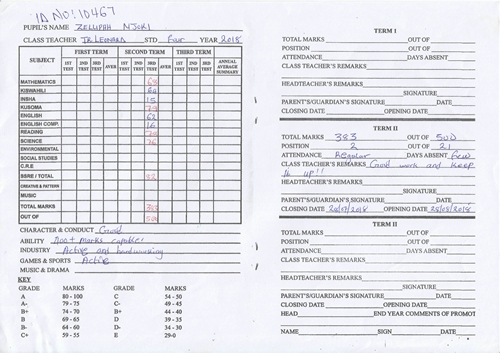 ID NO: 10467
PUPIL'S NAME ZELIPAH NJOKI
CLASS TEACHER TR LEONARD STD Four YEAR 2018
SUBJECT FIRST TERM SECOND TERM THIRD TERM
1ST TEST 2ND TEST 3RD TEST AVER 1ST TEST 2ND TEST 3RD TEST AVER 1ST TEST 2ND TEST 3RD TEST ANNUAL AVERAGE SUMMARY
MATHEMATICS 68
KISWAHILI 60
INSHA 15
KUSOMA 79
ENGLISH 62
ENGLISH COMP. 16
READING
SCIENCE 76
ENVIRONMENTAL
SOCIAL STUDIES
C.R.E
SSRE / TOTAL 82
CREATIVE & PATTERN
MUSIC
TOTAL MARKS 383
OUT OF 500
CHARACTER & CONDUCT Good
ABILITY 400+ marks capable!
INDUSTRY Active and hardworking
GAMES & SPORTS Active
MUSIC & DRAMA
KEY
GRADE MARKS GRADE MARKS
A 80 - 100 C 54 - 50
A- 79 - 75 C- 49 - 45
B+ 74 - 70 B+ 44 - 40
B 69 - 65 D 39 - 35
B- 64 - 60 D- 34 - 30
C+ 59 - 55 E 29-0
TERM I
TOTAL MARKS OUT OF
POSITION OUT OF
ATTENDANCE DAYS ABSENT
CLASS TEACHER'S REMARKS
HEADTEACHER'S REMARKS
SIGNATURE
PARENT'S/GUARDIAN'S SIGNATURE DATE
CLOSING DATE OPENING DATE
TERM II
TOTAL MARKS 383 OUT OF 500
POSITION 2 OUT OF 21
ATTENDANCE Regular DAYS ABSENT few
CLASS TEACHER'S REMARKS Good work and keep
it up!!
HEADTEACHER'S REMARKS
SIGNATURE
PARENT'S/GUARDIAN'S SIGNATURE DATE
CLOSING DATE 2018 OPENING DATE 2018
TERM II
TOTAL MARKS OUT OF
POSITION OUT OF
ATTENDANCE DAYS ABSENT
CLASS TEACHER'S REMARKS
HEADTEACHER'S REMARKS
SIGNATURE
PARENT'S/GUARDIAN'S SIGNATURE DATE
CLOSING DATE OPENING DATE
HEAD END YEAR COMMENTS OF PROMOT
NAME SIGN DATE